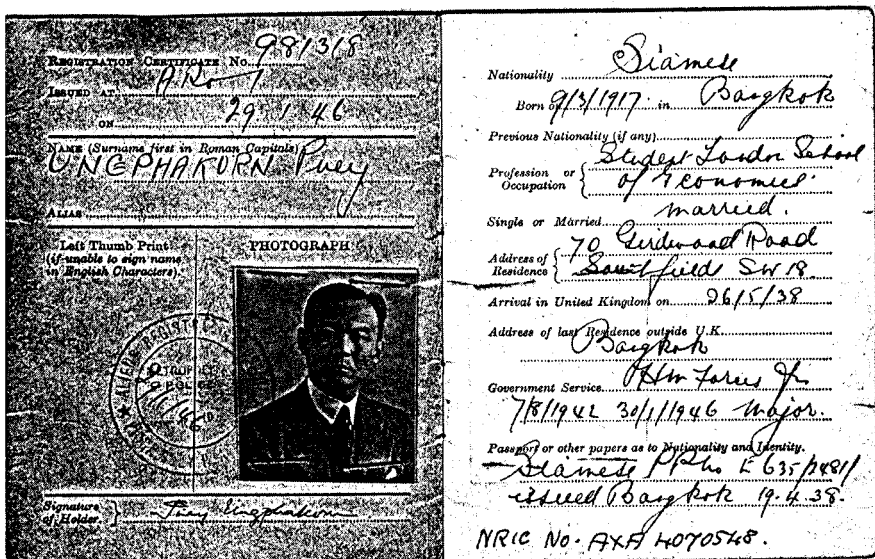 REGISTRATION CERTIFICATE No. 981318
ISSUED AT A.R.O.
ON 29.1.46
NAME (Surname first in Roman Capitals)
UNGPHAKORN Puey
ALIAS
Left Thumb Print
(if unable to sign name
in English Characters).
PHOTOGRAPH
ALIENS REGISTRATION
Signature
of Holder.
Puey Ungphakorn
Nationality Siamese
Born on 9/3/1917 in Bangkok
Previous Nationality (if any)
Profession or
Occupation
Student London School
of Economics.
Single or Married married.
Address of
Residence
70 Road
Southfields SW 18.
Arrival in United Kingdom on 26/5/38
Address of last Residence outside U.K.
Bangkok
Government Service HM Forces
7/8/1942 30/1/1946 Major.
Passport or other papers as to Nationality and Identity.
Siamese PP No E 635/2481/
issued Bangkok 19.4.38.
NRIC No. AXA 4070548.